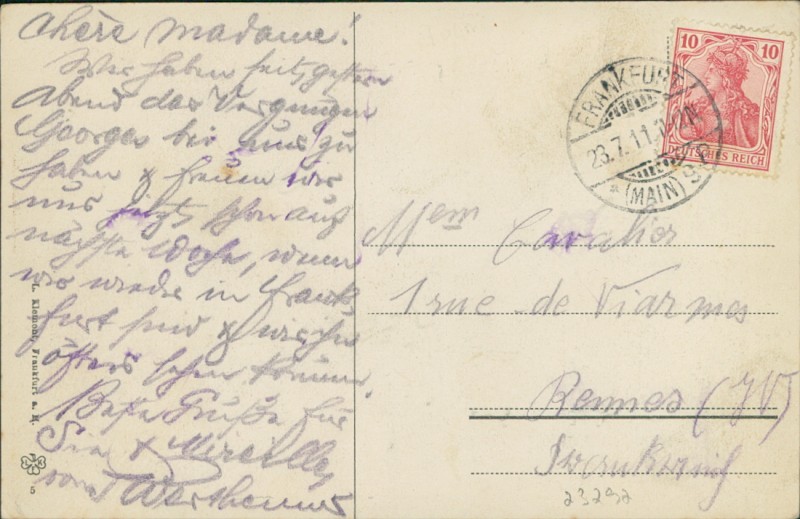 Chère Madame!
Wir haben seit gestern
Abend das Vergnügen
Georges bei uns zu
haben & freuen wir
uns jetzt schon auf
nächste Woche, wenn
wir wieder in Frank-
furt sind & wir ihn
öfters sehen können.
Beste Grüße für
Sie & Mireille,
von
L. Klement, Frankfurt a. M.
5
10 10
DEUTSCHES REICH
FRANKFURT
23.7.11
(MAIN)
Mem Cavalier
1 rue de Viarmes
Rennes (IV)
Frankreich
23292